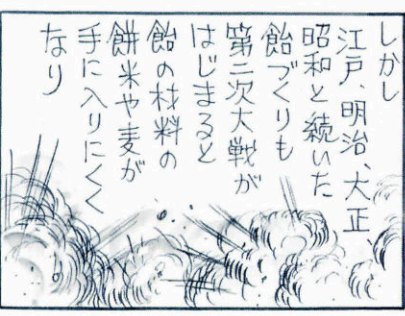 しかし
江戸、明治、大正
昭和と続いた
飴づくりも
第二次大戦が
はじまると
飴の材料の
餅米や麦が
手に入りにくく
なり